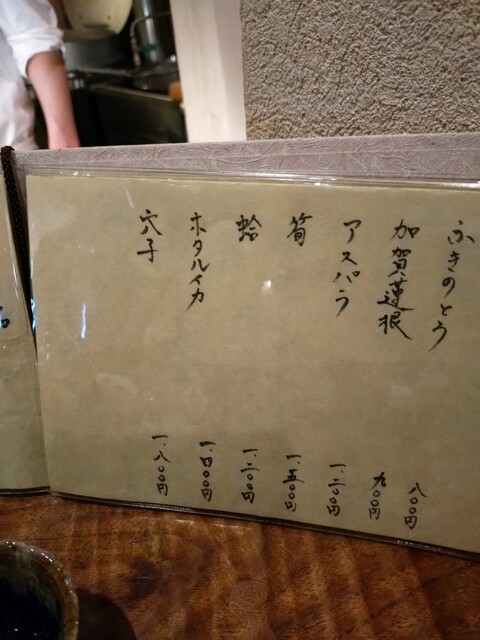 ふきのとう 八〇〇円
加賀蓮根 九〇〇円
アスパラ 一、二〇〇円
筍 一、五〇〇円
蛤 一、二〇〇円
ホタルイカ 一、四〇〇円
穴子 一、八〇〇円